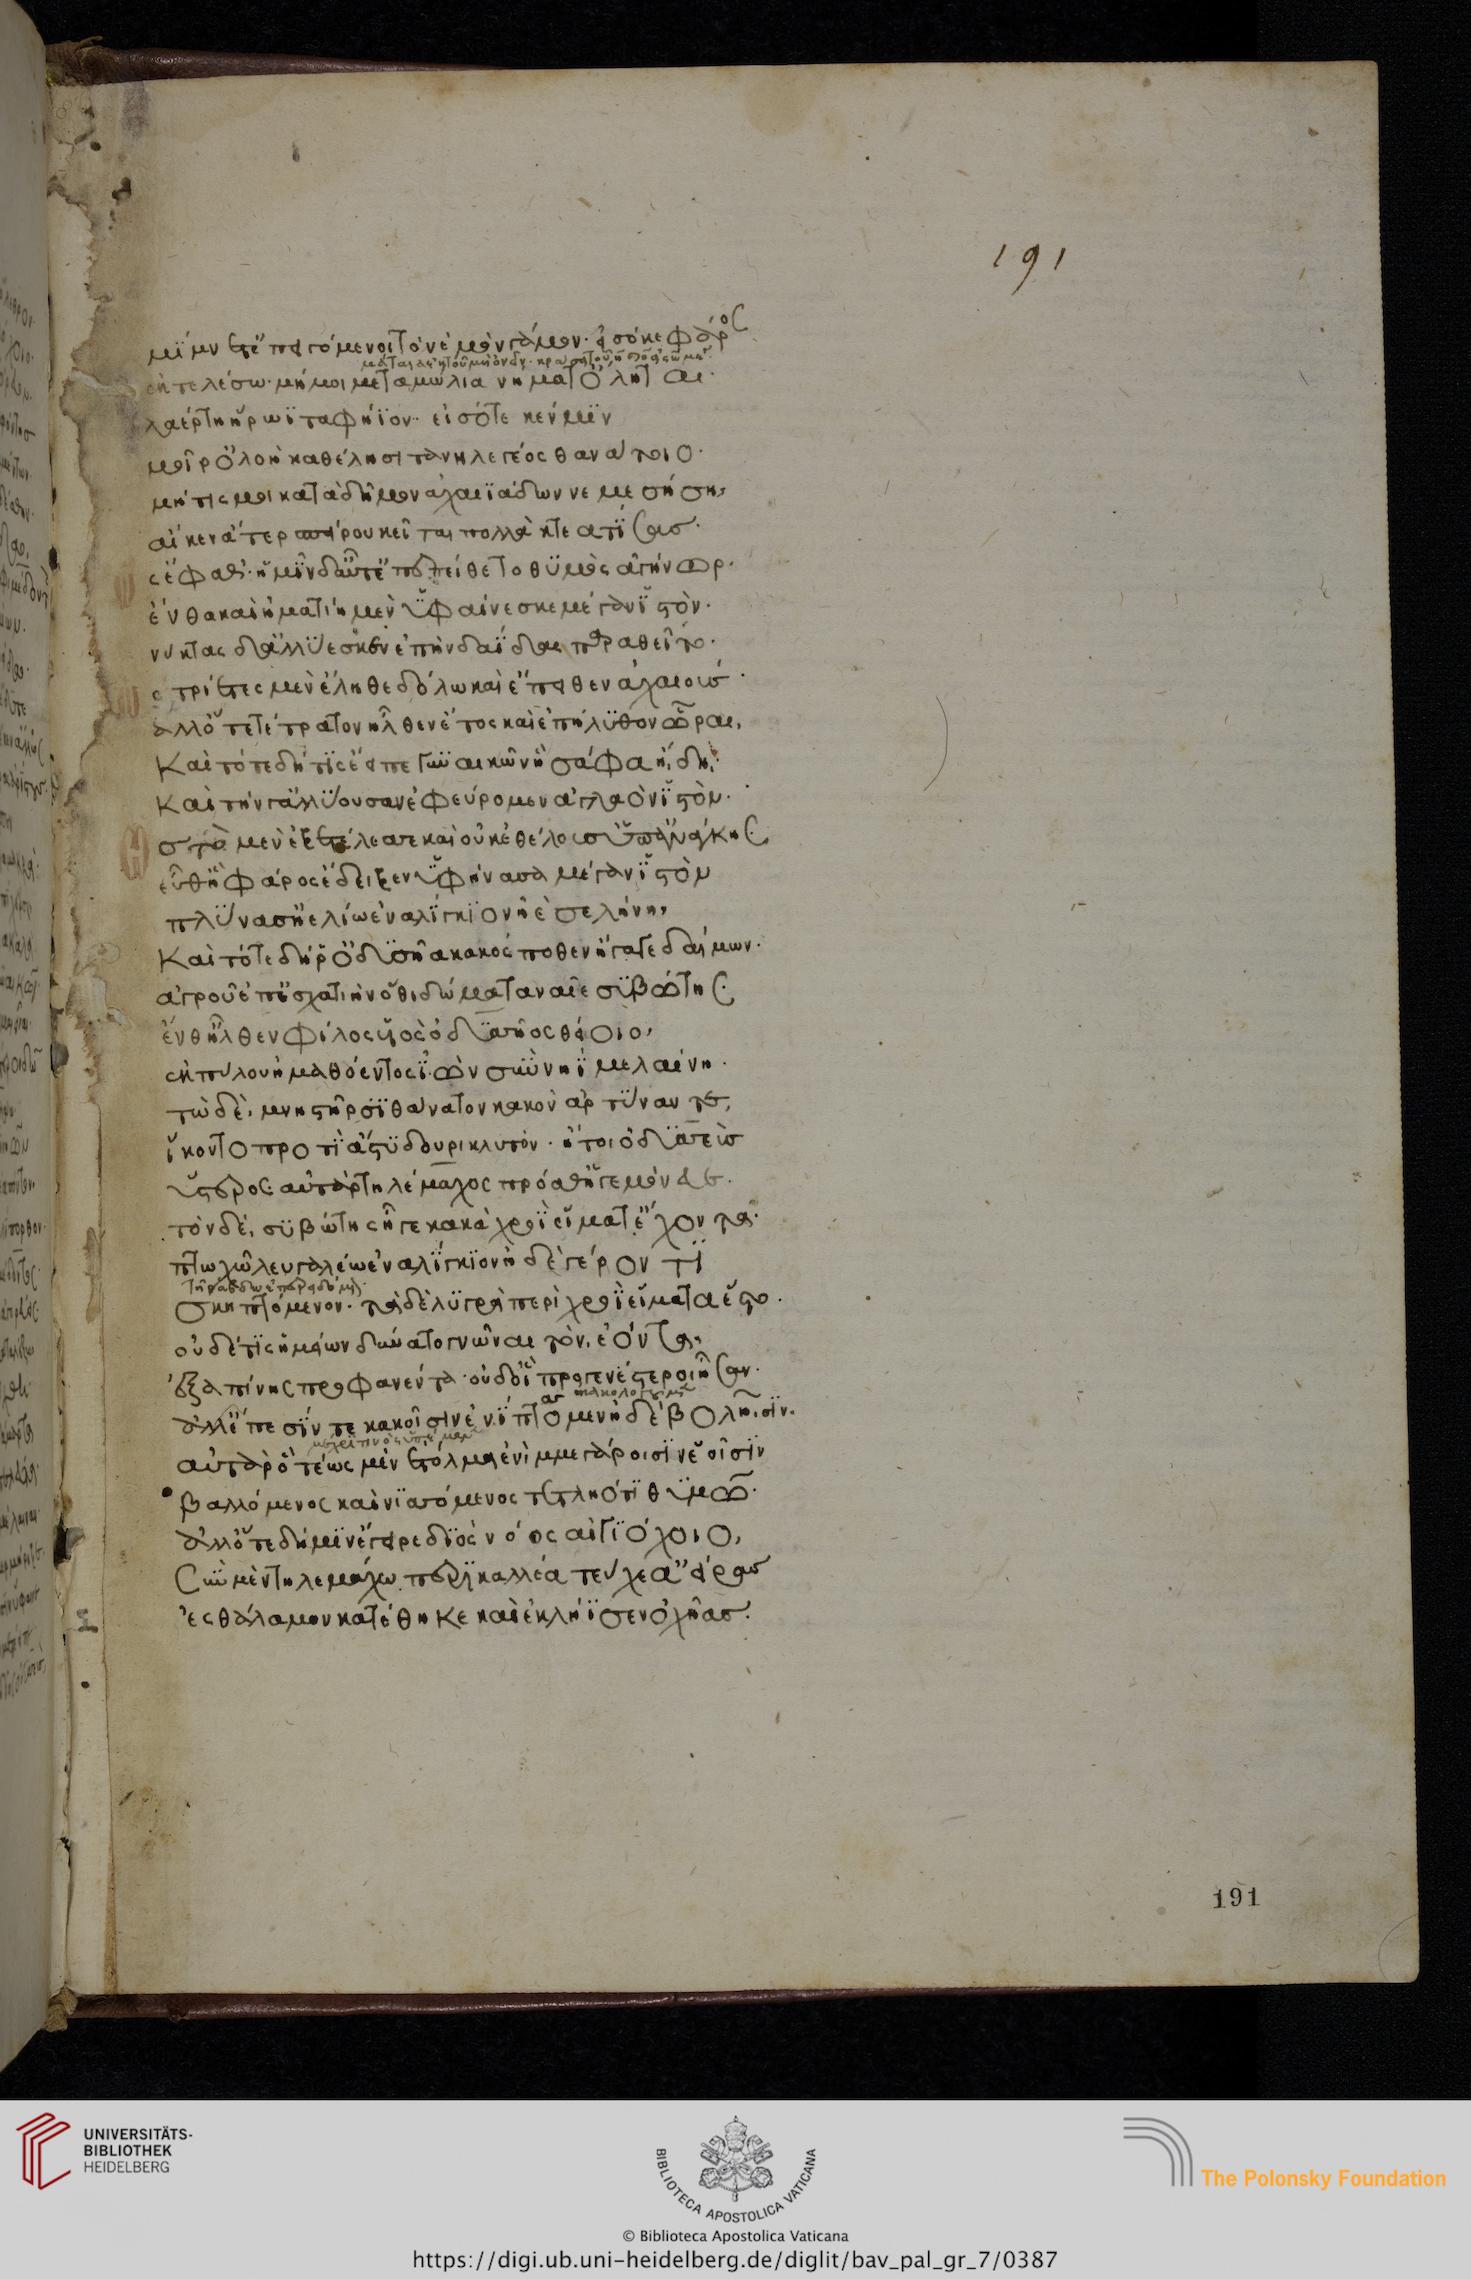 μίμνετ' ἐπειγόμενοι τὸν ἐμὸν γάμον· εἰσόκε φάρος
ἐκτελέσω· μή μοι μεταμώλια νήματ' ὄληται·
λαέρτη ἥρωϊ ταφήϊον· εἰσότε κέν μϊν
μοῖρ' ὀλοὴ καθέλησι τανηλεγέος θανάτοιο·
μήτις μοι κατὰ δῆμον ἀχαιϊάδων νεμεσήση,
αἴ κεν ἄτερ σπείρου κεῖται πολλὰ κτεατίσσας·
ς ἔφαθ'· ἡμῖν δ' αὖτ' ἐπεπείθετο θυμὸς ἀγήνωρ·
ἔνθα καὶ ἠματίη μὲν ὑφαίνεσκε μέγαν ἱστόν·
νύκτας δ' ἀλλύεσκεν ἐπὴν δαΐδας παραθεῖτο·
ς τρίετες μὲν ἔληθε δόλω καὶ ἔπειθεν ἀχαιούς·
ἀλλ' ὅτε τέτρατον ἦλθεν ἔτος καὶ ἐπήλυθον ὧραι,
Καὶ τότε δή τις ἔειπε γυναικῶν ἣ σάφα ἤδη·
Καὶ τήν γ' ἀλλύουσαν ἐφεύρομεν ἀγλαὸν ἱστόν·
ς τὸ μὲν ἐξετέλεσσε καὶ οὐκ ἐθέλουσ' ὑπ' ἀνάγκης·
εὖθ' ἣ φάρος ἔδειξεν ὑφήνασα μέγαν ἱστὸν
πλύνασ' ἠελίω ἐναλίγκιον ἠὲ σελήνη,
Καὶ τότε δή ῥ' ὀδυσῆα κακός ποθεν ἤγαγε δαίμων·
ἀγροῦ ἐπ' ἐσχατιὴν ὅθι δώματα ναῖε συβώτης·
ἔνθ' ἦλθεν φίλος υἱὸς ὀδυσσῆος θείοιο,
ἐκ πύλου ἠμαθόεντος ἰὼν σὺν νηῒ μελαίνη·
τὼ δὲ, μνηστῆρσι θάνατον κακὸν ἀρτύναντες,
ἵκοντο προτὶ ἄστυ δουρικλυτόν· ἤτοι ὀδυσσεὺς
ὕστερος· αὐτὰρ τηλέμαχος πρόσθ' ἡγεμόνευε·
τὸν δὲ, συβώτης ἦγε κακὰ χροῒ εἵματ' ἔχοντα·
πτωχῶ λευγαλέω ἐναλίγκιον ἠδὲ γέροντϊ
σκηπτόμενον· τὰ δὲ λυγρὰ περὶ χροῒ εἵματα ἕστο·
οὐδέ τις ἡμείων δύνατο γνῶναι τὸν ἐόντα,
ἐξαπίνης προφανέντα· οὐδ' οἳ προγενέστεροι ἦσαν·
ἀλλ' ἔπεσίν τε κακοῖσιν ἐνίπτομεν ἠδὲ βολῆσιν·
αὐτὰρ ὃ τέως μὲν ἐτόλμα ἐνὶ μμεγάροισιν ἑοῖσϊν
βαλλόμενος καὶ ἐνισσόμενος τετληότι θυμῶ·
ἀλλ' ὅτε δή μϊν ἔγειρε διὸς νόος αἰγιόχοιο,
Σὺν μὲν τηλεμάχω περικαλλέα τεύχε' ἀείρας
ἐς θάλαμον κατέθηκε καὶ ἐκλήϊσεν ὀχῆας·
191
191
UNIVERSITÄTS-
BIBLIOTHEK
HEIDELBERG
BIBLIOTECA APOSTOLICA VATICANA
The Polonsky Foundation
© Biblioteca Apostolica Vaticana
https://digi.ub.uni-heidelberg.de/diglit/bav_pal_gr_7/0387